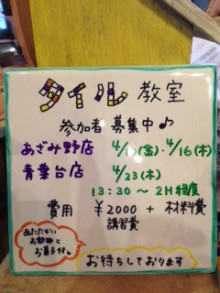 タイル教室
参加者募集中♪
あざみ野店 4/10(金)・4/16(木)
青葉台店 4/23(木)
13:30～2H程度
費用 ¥2000 + 材料費
講習費
あたたかい
お飲物と
お菓子付。
お待ちしております